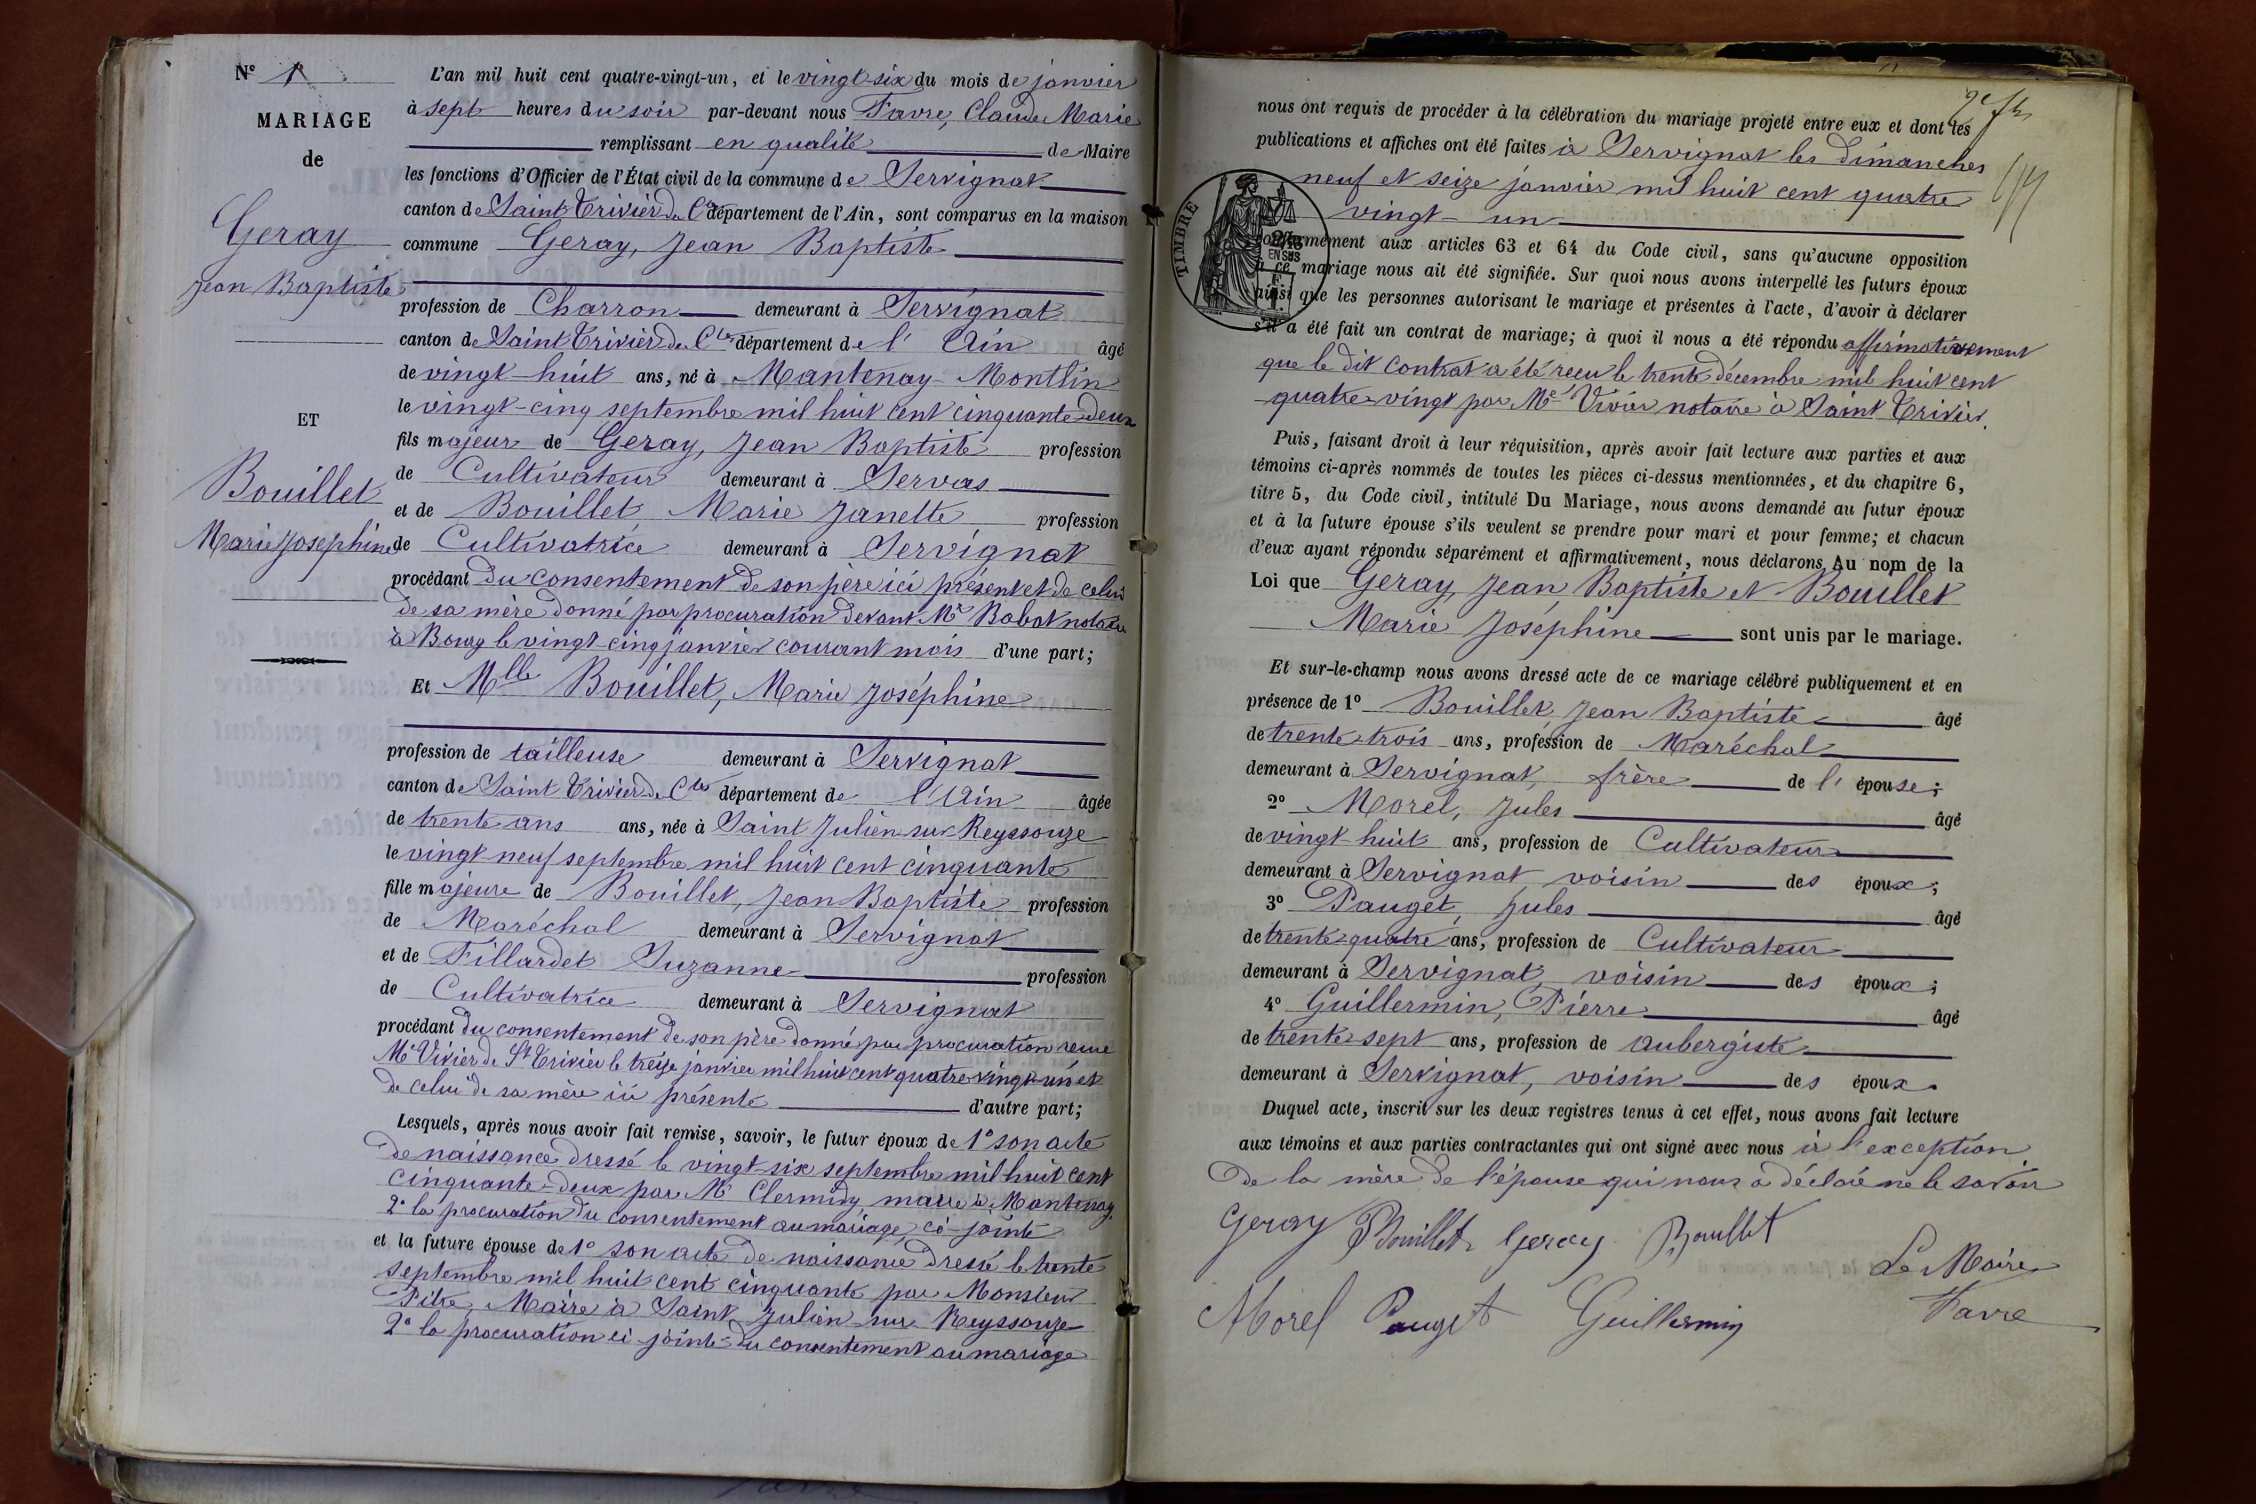 N° 1
MARIAGE
de
Geray
Jean Baptiste
ET
Bouillet
Marie Joséphine
L'an mil huit cent quatre-vingt-un, et le vingt six du mois de janvier
à sept heures du soir par-devant nous Favre, Claude Marie
remplissant en qualité de Maire
les fonctions d'Officier de l'État civil de la commune de Servignat
canton de Saint Trivier de Ctes département de l'Ain, sont comparus en la maison
commune Geray, Jean Baptiste
profession de Charron demeurant à Servignat
canton de Saint Trivier de Ctes département de l'Ain âgé
de vingt-huit ans, né à Mantenay-Montlin
le vingt-cinq septembre mil huit cent cinquante-deux
fils majeur de Geray, Jean Baptiste profession
de Cultivateur demeurant à Servas
et de Bouillet Marie Janette, profession
de Cultivatrice demeurant à Servignat
procédant du consentement de son père ici présent et de celui
de sa mère donné par procuration devant Me Bobot notaire
à Bourg le vingt-cinq janvier courant mois d'une part;
Et Mlle Bouillet, Marie Joséphine
profession de tailleuse demeurant à Servignat
canton de Saint Trivier de Ctes département de l'Ain âgée
de trente ans ans, née à Saint Julien sur Reyssouze
le vingt-neuf septembre mil huit cent cinquante
fille majeure de Bouillet, Jean Baptiste profession
de Maréchal demeurant à Servignat
et de Fillardet Suzanne profession
de Cultivatrice demeurant à Servignat
procédant du consentement de son père donné par procuration reçue
Me Vivier de St Trivier le treize janvier mil huit cent quatre vingt-un et
de celui de sa mère ici présente d'autre part;
Lesquels, après nous avoir fait remise, savoir, le futur époux de 1° son acte
de naissance dressé le vingt-six septembre mil huit cent
cinquante-deux par Mr Clermidy, maire à Mantenay.
2° la procuration du consentement au mariage, ci-jointe
et la future épouse de 1° son acte de naissance dressé le trente
septembre mil huit cent cinquante par Monsieur
Pitre, Maire à Saint Julien sur Reyssouze
2° la procuration ci jointe du consentement au mariage
nous ont requis de procéder à la célébration du mariage projeté entre eux et dont les
publications et affiches ont été faites à Servignat les dimanches
neuf et seize janvier mil huit cent quatre
vingt-un
TIMBRE
conformément aux articles 63 et 64 du Code civil, sans qu'aucune opposition
à ce mariage nous ait été signifiée. Sur quoi nous avons interpellé les futurs époux
ainsi que les personnes autorisant le mariage et présentes à l'acte, d'avoir à déclarer
s'il a été fait un contrat de mariage; à quoi il nous a été répondu affirmativement
que le dit contrat a été reçu le trente décembre mil huit cent
quatre-vingt par Me Vivier notaire à Saint Trivier.
Puis, faisant droit à leur réquisition, après avoir fait lecture aux parties et aux
témoins ci-après nommés de toutes les pièces ci-dessus mentionnées, et du chapitre 6,
titre 5, du Code civil, intitulé Du Mariage, nous avons demandé au futur époux
et à la future épouse s'ils veulent se prendre pour mari et pour femme; et chacun
d'eux ayant répondu séparément et affirmativement, nous déclarons Au nom de la
Loi que Geray, Jean Baptiste et Bouillet
Marie Joséphine sont unis par le mariage.
Et sur-le-champ nous avons dressé acte de ce mariage célébré publiquement et en
présence de 1° Bouillet Jean Baptiste âgé
de trente-trois ans, profession de Maréchal
demeurant à Servignat, frère de l'épouse;
2° Morel, Jules âgé
de vingt-huit ans, profession de Cultivateur
demeurant à Servignat, voisin des époux;
3° Pauget, Jules âgé
de trente-quatre ans, profession de Cultivateur
demeurant à Servignat, voisin des époux;
4° Guillermin, Pierre âgé
de trente-sept ans, profession de aubergiste
demeurant à Servignat, voisin des époux.
Duquel acte, inscrit sur les deux registres tenus à cet effet, nous avons fait lecture
aux témoins et aux parties contractantes qui ont signé avec nous à l'exception
de la mère de l'épouse qui nous a déclaré ne le savoir
Geray Bouillet Geray Bouillet
Le Maire
Morel Pauget Guillermin Favre